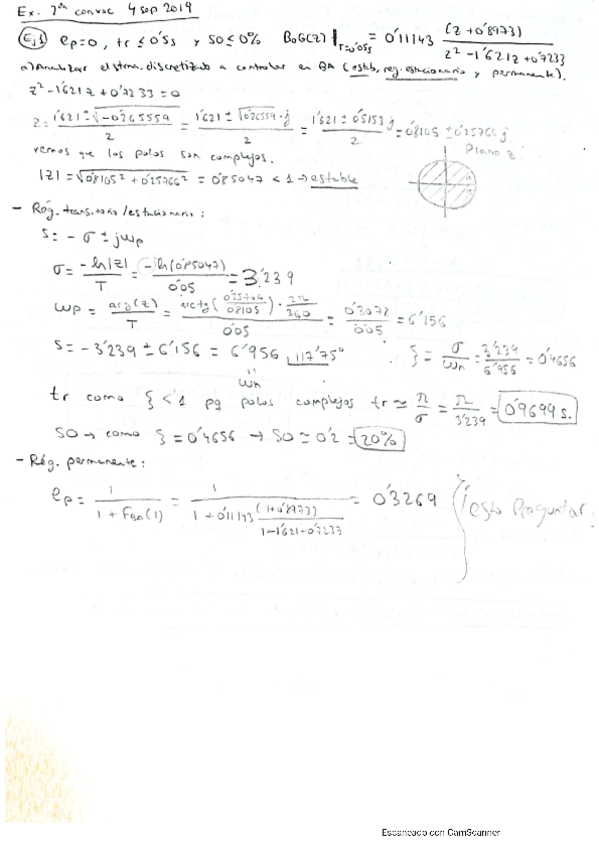 Ex. 2ª convoc 4 sep 2019
Ej1 ep=0, tr ≤ 0'5s y SO ≤ 0% BoG(z)|T=0'05s = 0'11143 (z+0'8973) / z²-1'621z+0'7233
a) Analizar el stma. discretizado a controlar en BA (estab, reg. estacionario y permanente).
z²-1'621z+0'7233=0
z = 1'621±√-0'265559 / 2 = 1'621±√0'26559·j / 2 = 1'621±0'5153j / 2 = 0'8105±0'25766j
vemos que los polos son complejos. Plano z
|z| = √0'8105²+0'25766² = 0'85047 < 1 → estable
- Rég. transitorio/estacionario:
s = -σ ± jωp
σ = -ln|z| / T = -ln(0'85047) / 0'05 = 3'239
ωp = arg(z) / T = arctg(0'25766 / 0'8105)·2π/360 / 0'05 = 0'3078 / 0'05 = 6'156
s = -3'239 ± 6'156 = 6'956 |117'75° ξ = σ/ωn = 3'239/6'956 = 0'4656
ωn
tr como ξ<1 pq polos complejos tr ≃ π/σ = π/3'239 = 0'9699 s.
SO → como ξ = 0'4656 → SO ≃ 0'2 = 20%
- Rég. permanente:
ep = 1 / 1+FBA(1) = 1 / 1+0'11143 (1+0'8973) / 1-1'621+0'7233 = 0'3269 ¡esto preguntar
Escaneado con CamScanner